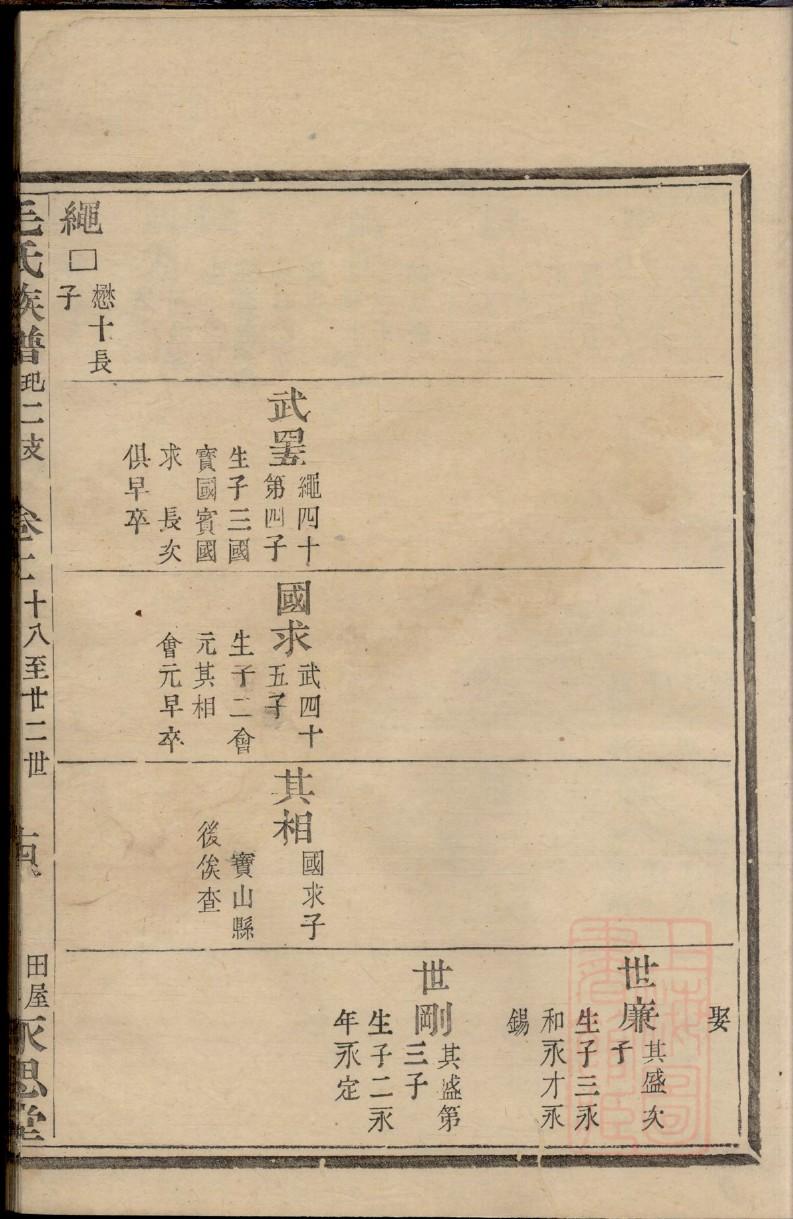 繩□
懋十長
子
武
繩四十
第四子
生子三國
寳國賓國
求　長次
俱早卒
國求
武四十
五子
生子二會
元其相
會元早卒
其相
國求子
寳山縣
後俟查
娶
世廉
其盛次
子
生子三永
和永才永
錫
世剛
其盛第
三子
生子二永
年永定
毛氏族譜
二支
卷二十八至廿二世
田屋
永思堂